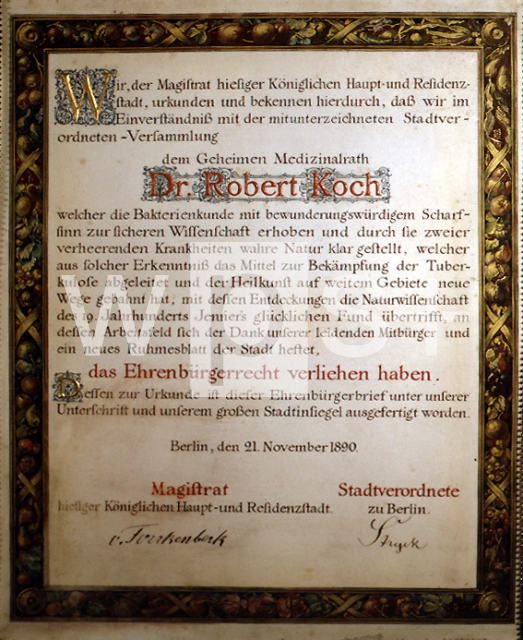 Wir, der Magistrat hiesiger Königlichen Haupt- und Residenz-
stadt, urkunden und bekennen hierdurch, daß wir im
Einverständniß mit der mitunterzeichneten Stadtver-
ordneten-Versammlung
dem Geheimen Medizinalrath
Dr. Robert Koch
welcher die Bakterienkunde mit bewunderungswürdigem Scharf-
sinn zur sicheren Wissenschaft erhoben und durch sie zweier
verheerenden Krankheiten wahre Natur klar gestellt, welcher
aus solcher Erkenntniß das Mittel zur Bekämpfung der Tuber-
kulose abgeleitet und der Heilkunst auf weitem Gebiete neue
Wege gebahnt hat, mit dessen Entdeckungen die Naturwissenschaft
des 19. Jahrhunderts Jenner's glücklichen Fund übertrifft, an
dessen Arbeitsfeld sich der Dank unserer leidenden Mitbürger und
ein neues Ruhmesblatt der Stadt heftet,
das Ehrenbürgerrecht verliehen haben.
Dessen zur Urkunde ist dieser Ehrenbürgerbrief unter unserer
Unterschrift und unserem großen Stadtinsiegel ausgefertigt worden.
Berlin, den 21. November 1890.
Magistrat
hiesiger Königlichen Haupt- und Residenzstadt.
Stadtverordnete
zu Berlin.
v. Forckenbeck
Stryck